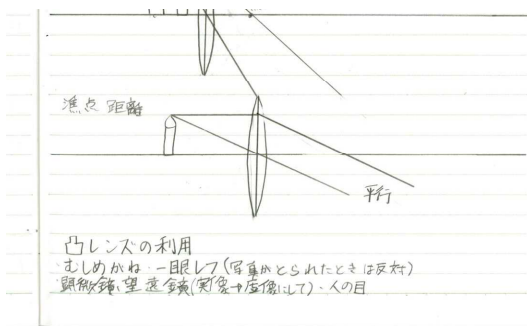 焦点距離
平行
凸レンズの利用
むしめがね・一眼レフ(写真がとられたときは反対)
顕微鏡、望遠鏡(実像→虚像にして)・人の目